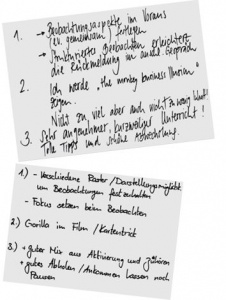 1. → Beobachtungsaspekte im Voraus
(ev. gemeinsam) festlegen
→ Strukturiertes Beobachten erleichtert
die Rückmeldung im anschl. Gespräch
2. Ich werde "the monkey business illusion"
zeigen.
Nicht zu viel aber auch nicht zu wenig Inhalt!
3. Sehr angenehmer, kurzweiliger Unterricht!
Tolle Tipps und schöne Abwechslung.
1.) - Verschiedene Raster/Darstellungsmöglichk.
um Beobachtungen festzuhalten
- Fokus setzen beim Beobachten
2.) Gorilla im Film / Kartentrick
3.) + guter Mix aus Aktivierung und Zuhören
+ gutes Abholen/Ankommen lassen nach
Pausen